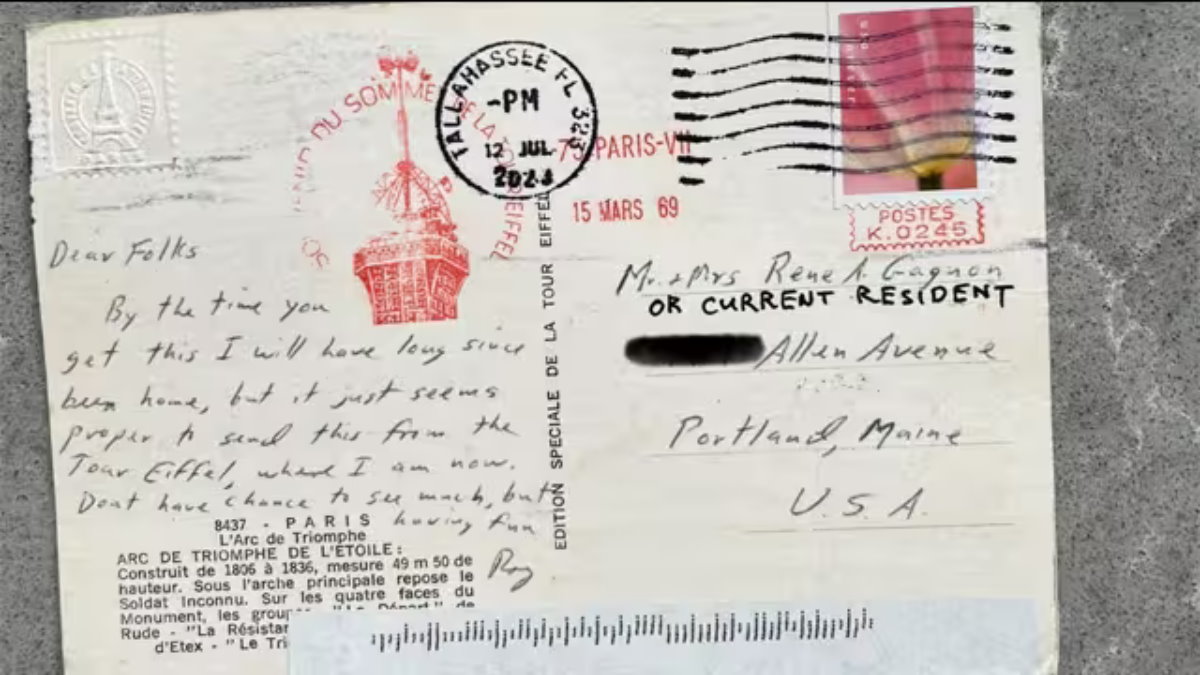 TALLAHASSEE FL 323
-PM
12 JUL
DU SOMMET DE LA TOUR EIFFEL
75 PARIS-VII
15 MARS 69
POSTES
K.0245
PARIS
Dear Folks
By the time you
get this I will have long since
been home, but it just seems
proper to send this from the
Tour Eiffel, where I am now.
Dont have chance to see much, but
having fun
Ray
8437 - PARIS
L'Arc de Triomphe
ARC DE TRIOMPHE DE L'ÉTOILE :
Construit de 1806 à 1836, mesure 49 m 50 de
hauteur. Sous l'arche principale repose le
Soldat Inconnu. Sur les quatre faces du
Monument, les "Le Départ" de
Rude - "La
d'Etex - "Le
EDITION SPECIALE DE LA TOUR EIFFEL
Mr. + Mrs Rene A. Gagnon
OR CURRENT RESIDENT
Allen Avenue
Portland, Maine
U.S.A.